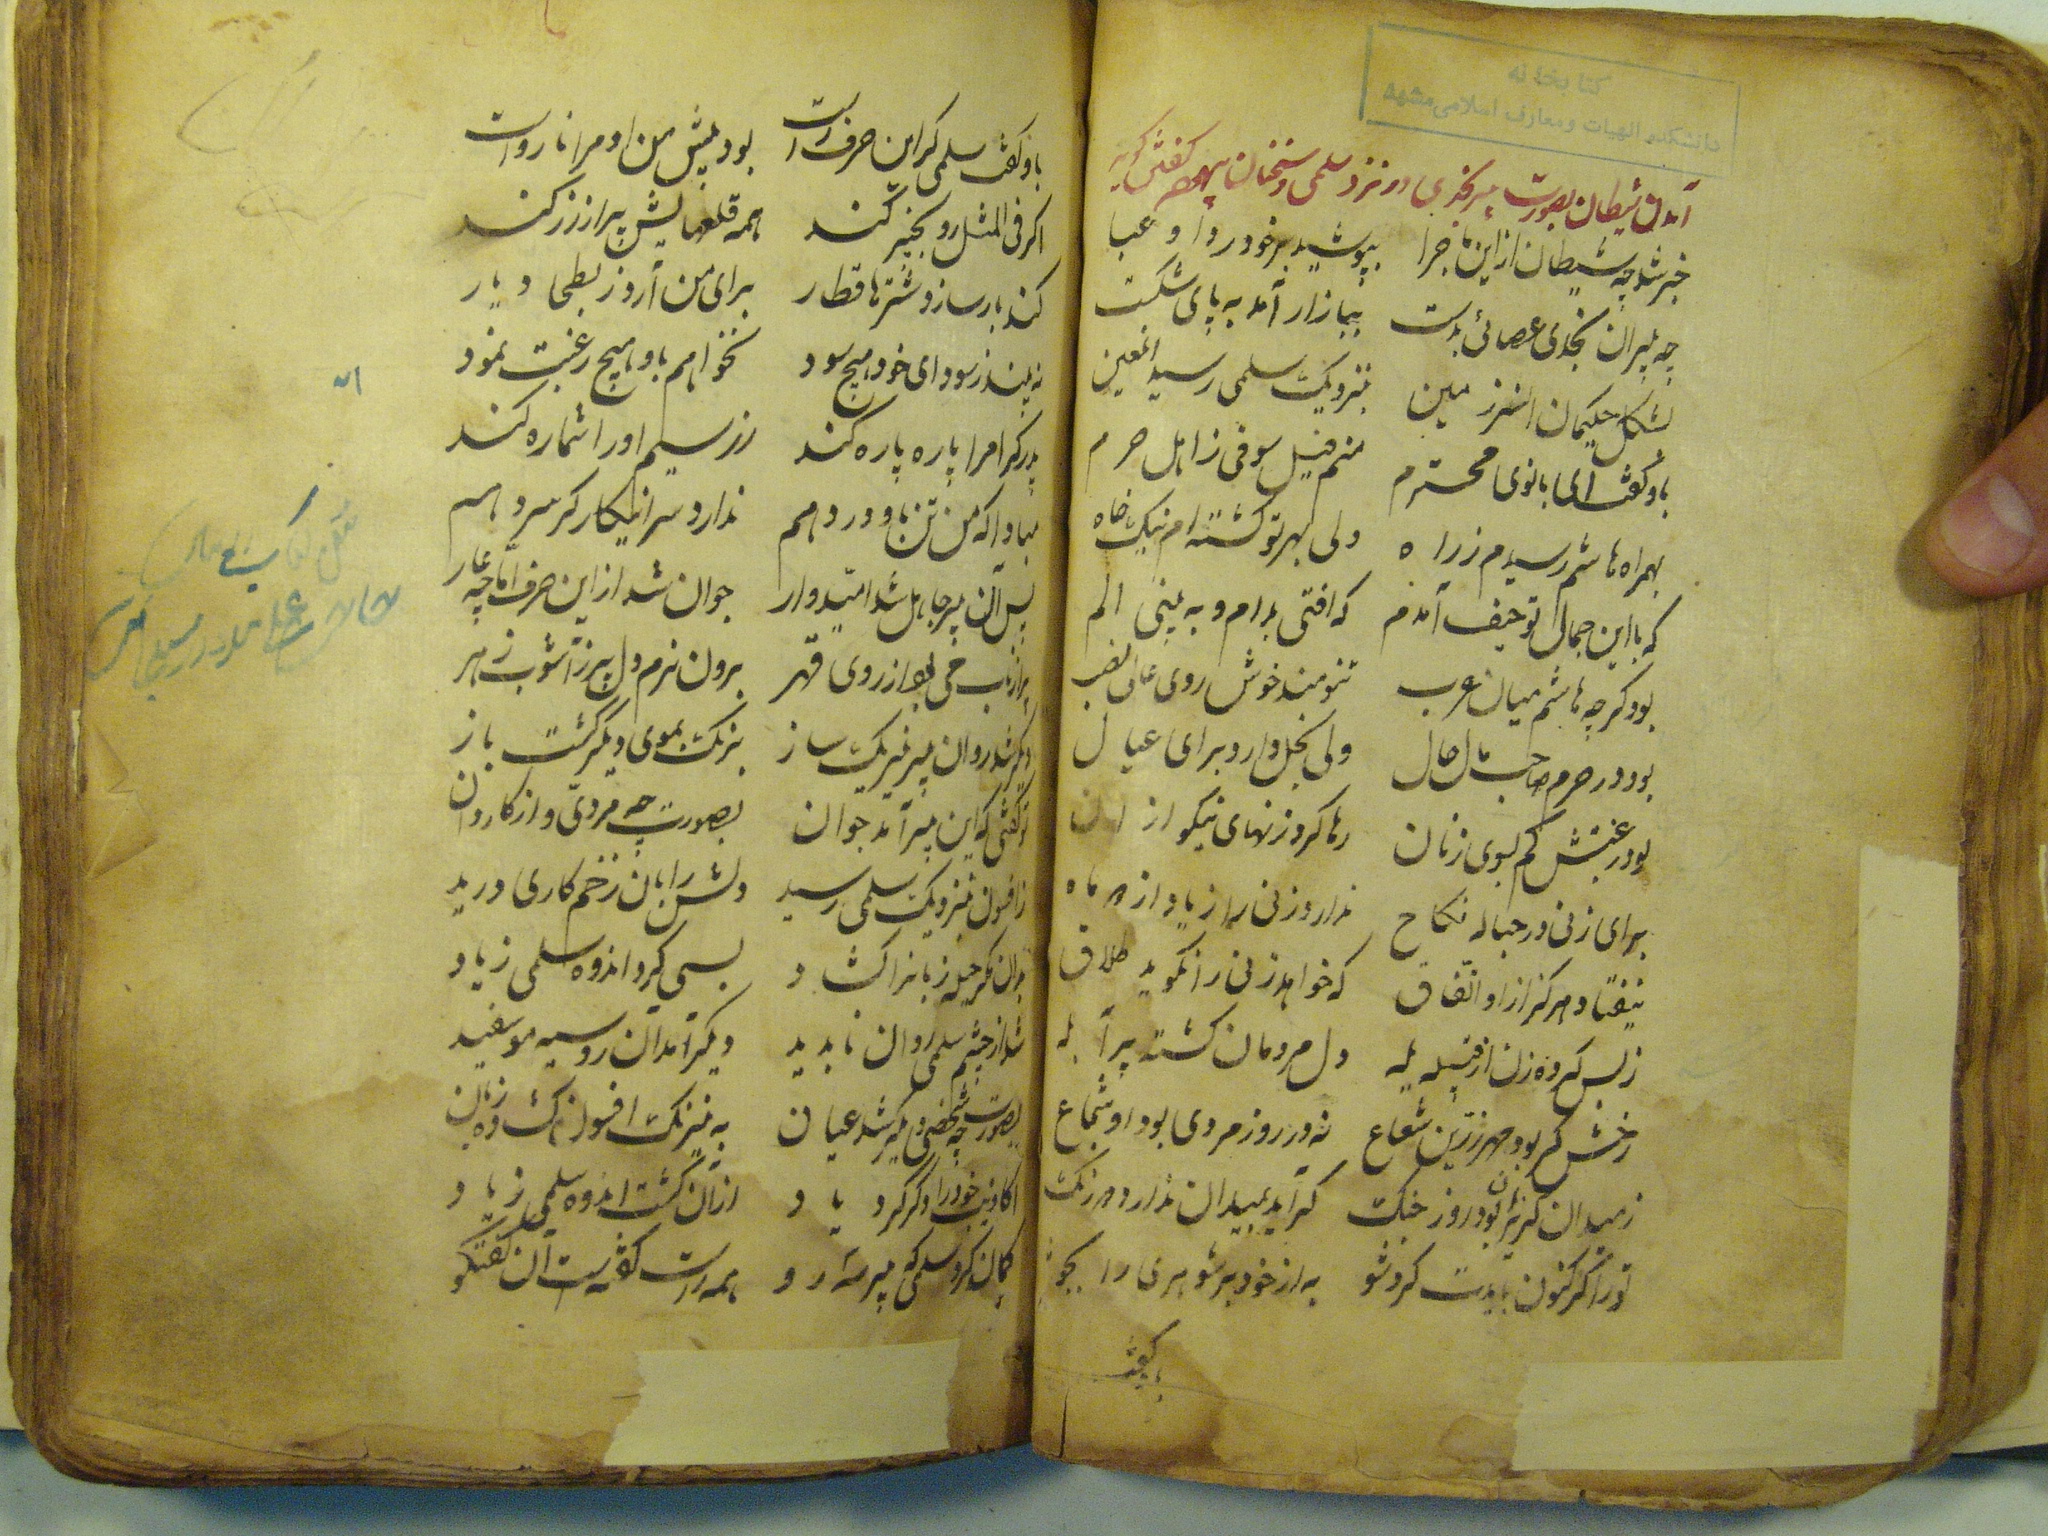 کتابخانه
دانشکده الهیات و معارف اسلامی مشهد
آمدن شیطان بصورت پیر نجدی در نزد سلمی و سخنان بیهوده گفتن گوید
خبر شد چه شیطان از این ماجرا بپوشید بر خود ردا و عبا
چه پیران نجدی عصائی بدست ببازار آمد به پای شکست
بشکل حکیمان بنزدیک سلمی رسید العین
باو گفت ای بانوی محترم منم فیلسوفی ز اهل حرم
بهمراه هاشم رسیدم ز راه ولی بهر تو گشته ام نیک خاه
که با این جمال تو حیف آمدم که افتی بدام و به بینی الم
بود گرچه هاشم میان عرب تنومند خوش روی عالی نصب
بود در حرم صاحب مال ولی بخل دارد برای عیال
بود رغبتش کم بسوی زنان رها کرد زنهای نیکو از
برای زنی در حباله نکاح ندارد زنی را زیاد از ماه
نیفتاد هرگز از او اتفاق که خواهد زنی را نگوید طلاق
ز بس کرده زن از قبیله یله دل مردمان گشته پر آبله
رخش گر بود مهر زرین شعاع نه در روز مردی بود او شجاع
ز میدان گریزان بود روز جنگ گر آید بمیدان ندارد درنگ
تو را گر کنون بایدت کرد شو به از خود بر شوهری را بجو
باو گفت
باو گفت سلمی گر این حرف راست بود پیش من او مرا نارواست
اگر فی المثل رو بخیبر کند همه قلعهایش پر از زر کند
کند بار ساز و شترها قطار برای من آرد ز بطحا و یار
نه بیند ز سودای خود هیچ سود نخواهم باو هیچ رغبت نمود
پدر گر مرا پاره پاره کند زر سیم او را شماره کند
مبادا که من تن باو در دهم ندارد سر اینکار گر سر دهم
پس آن پیر جاهل شد امیدوار جوان شد از این حرف اما چه عار
برون نرم دل پر ز آشوب زهر
دگر شد روان پیر نیرنگ ساز بزنگ بموی دیگر گشت باز
تو گفتی که این پیر آمد جوان بصورت چه مردی و از کاروان
ز افسون بنزدیک سلمی رسید دلش را بآن زخم کاری درید
بدان مکر حیله زبانرا گشاد بسی کرد اندوه سلمی زیاد
شد از چشم سلمی روان ناپدید دیگر آمد آن روسیه مو سفید
بصورت چه شخصی دیگر شد عیان به نیرنگ افسون گشوده زبان
اکاذیب خود را دگر کرد یاد از آن گشت اندوه سلمی زیاد
گمان کرد سلمی که پیر سه رو همه راست گفته است آن گفتگو